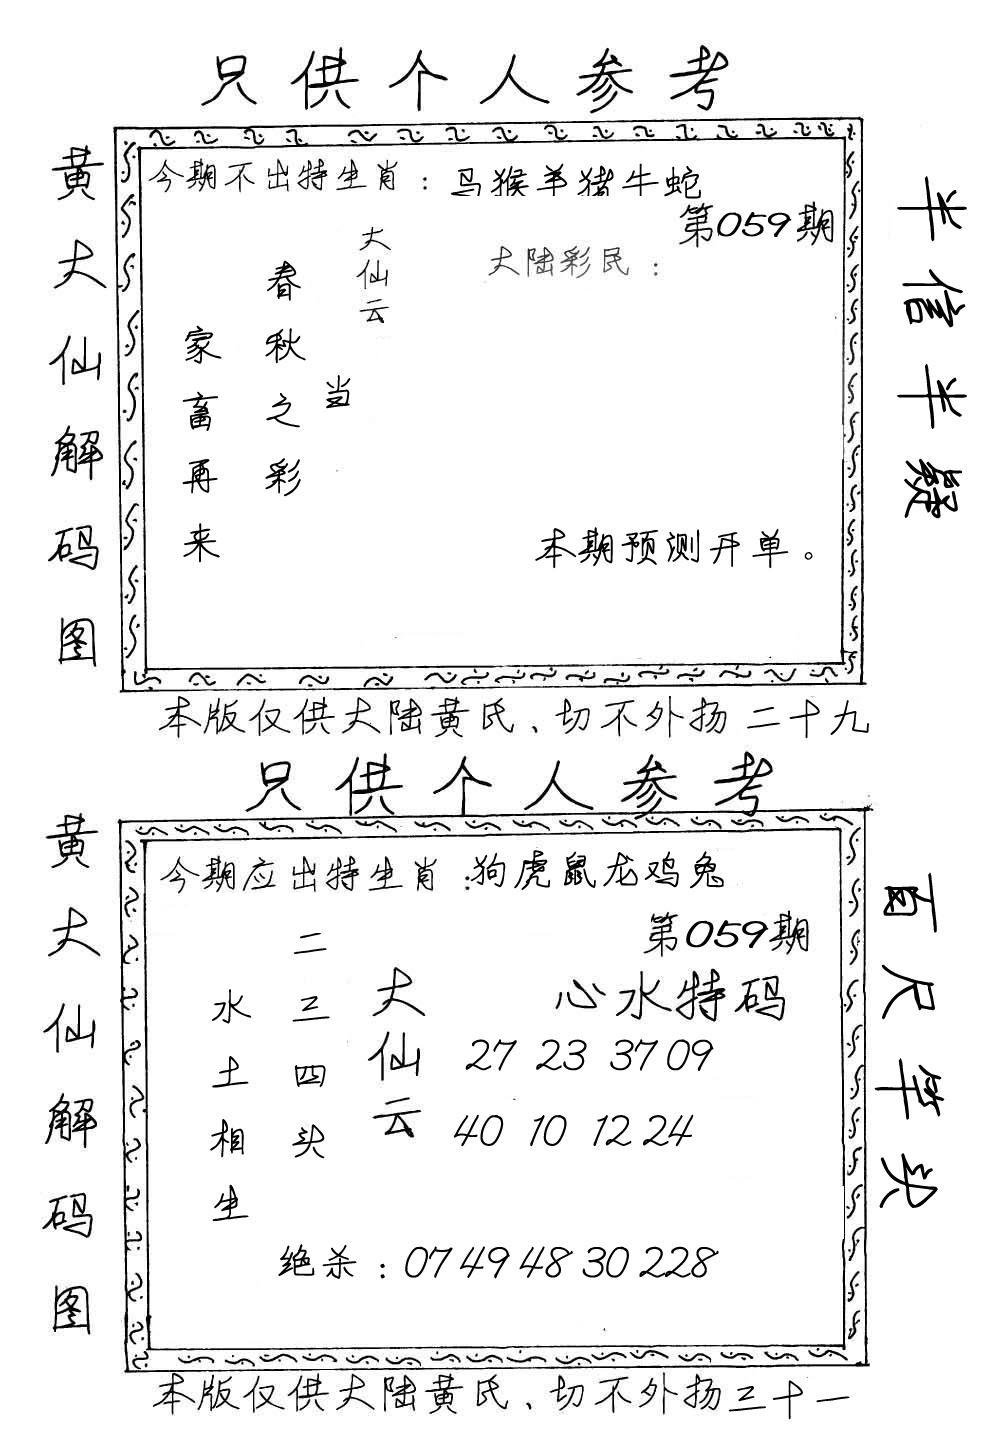 只供个人参考
黄大仙解码图
今期不出特生肖：马猴羊猪牛蛇
第059期
大仙云
大陆彩民：
当
春秋之彩
家畜再来
本期预测开单。
半信半疑
本版仅供大陆黄氏、切不外扬二十九
只供个人参考
黄大仙解码图
今期应出特生肖：狗虎鼠龙鸡兔
第059期
大仙云
二三四头
水土相生
心水特码
27 23 37 09
40 10 12 24
绝杀：07 49 48 30 228
百尺竿头
本版仅供大陆黄氏、切不外扬三十一